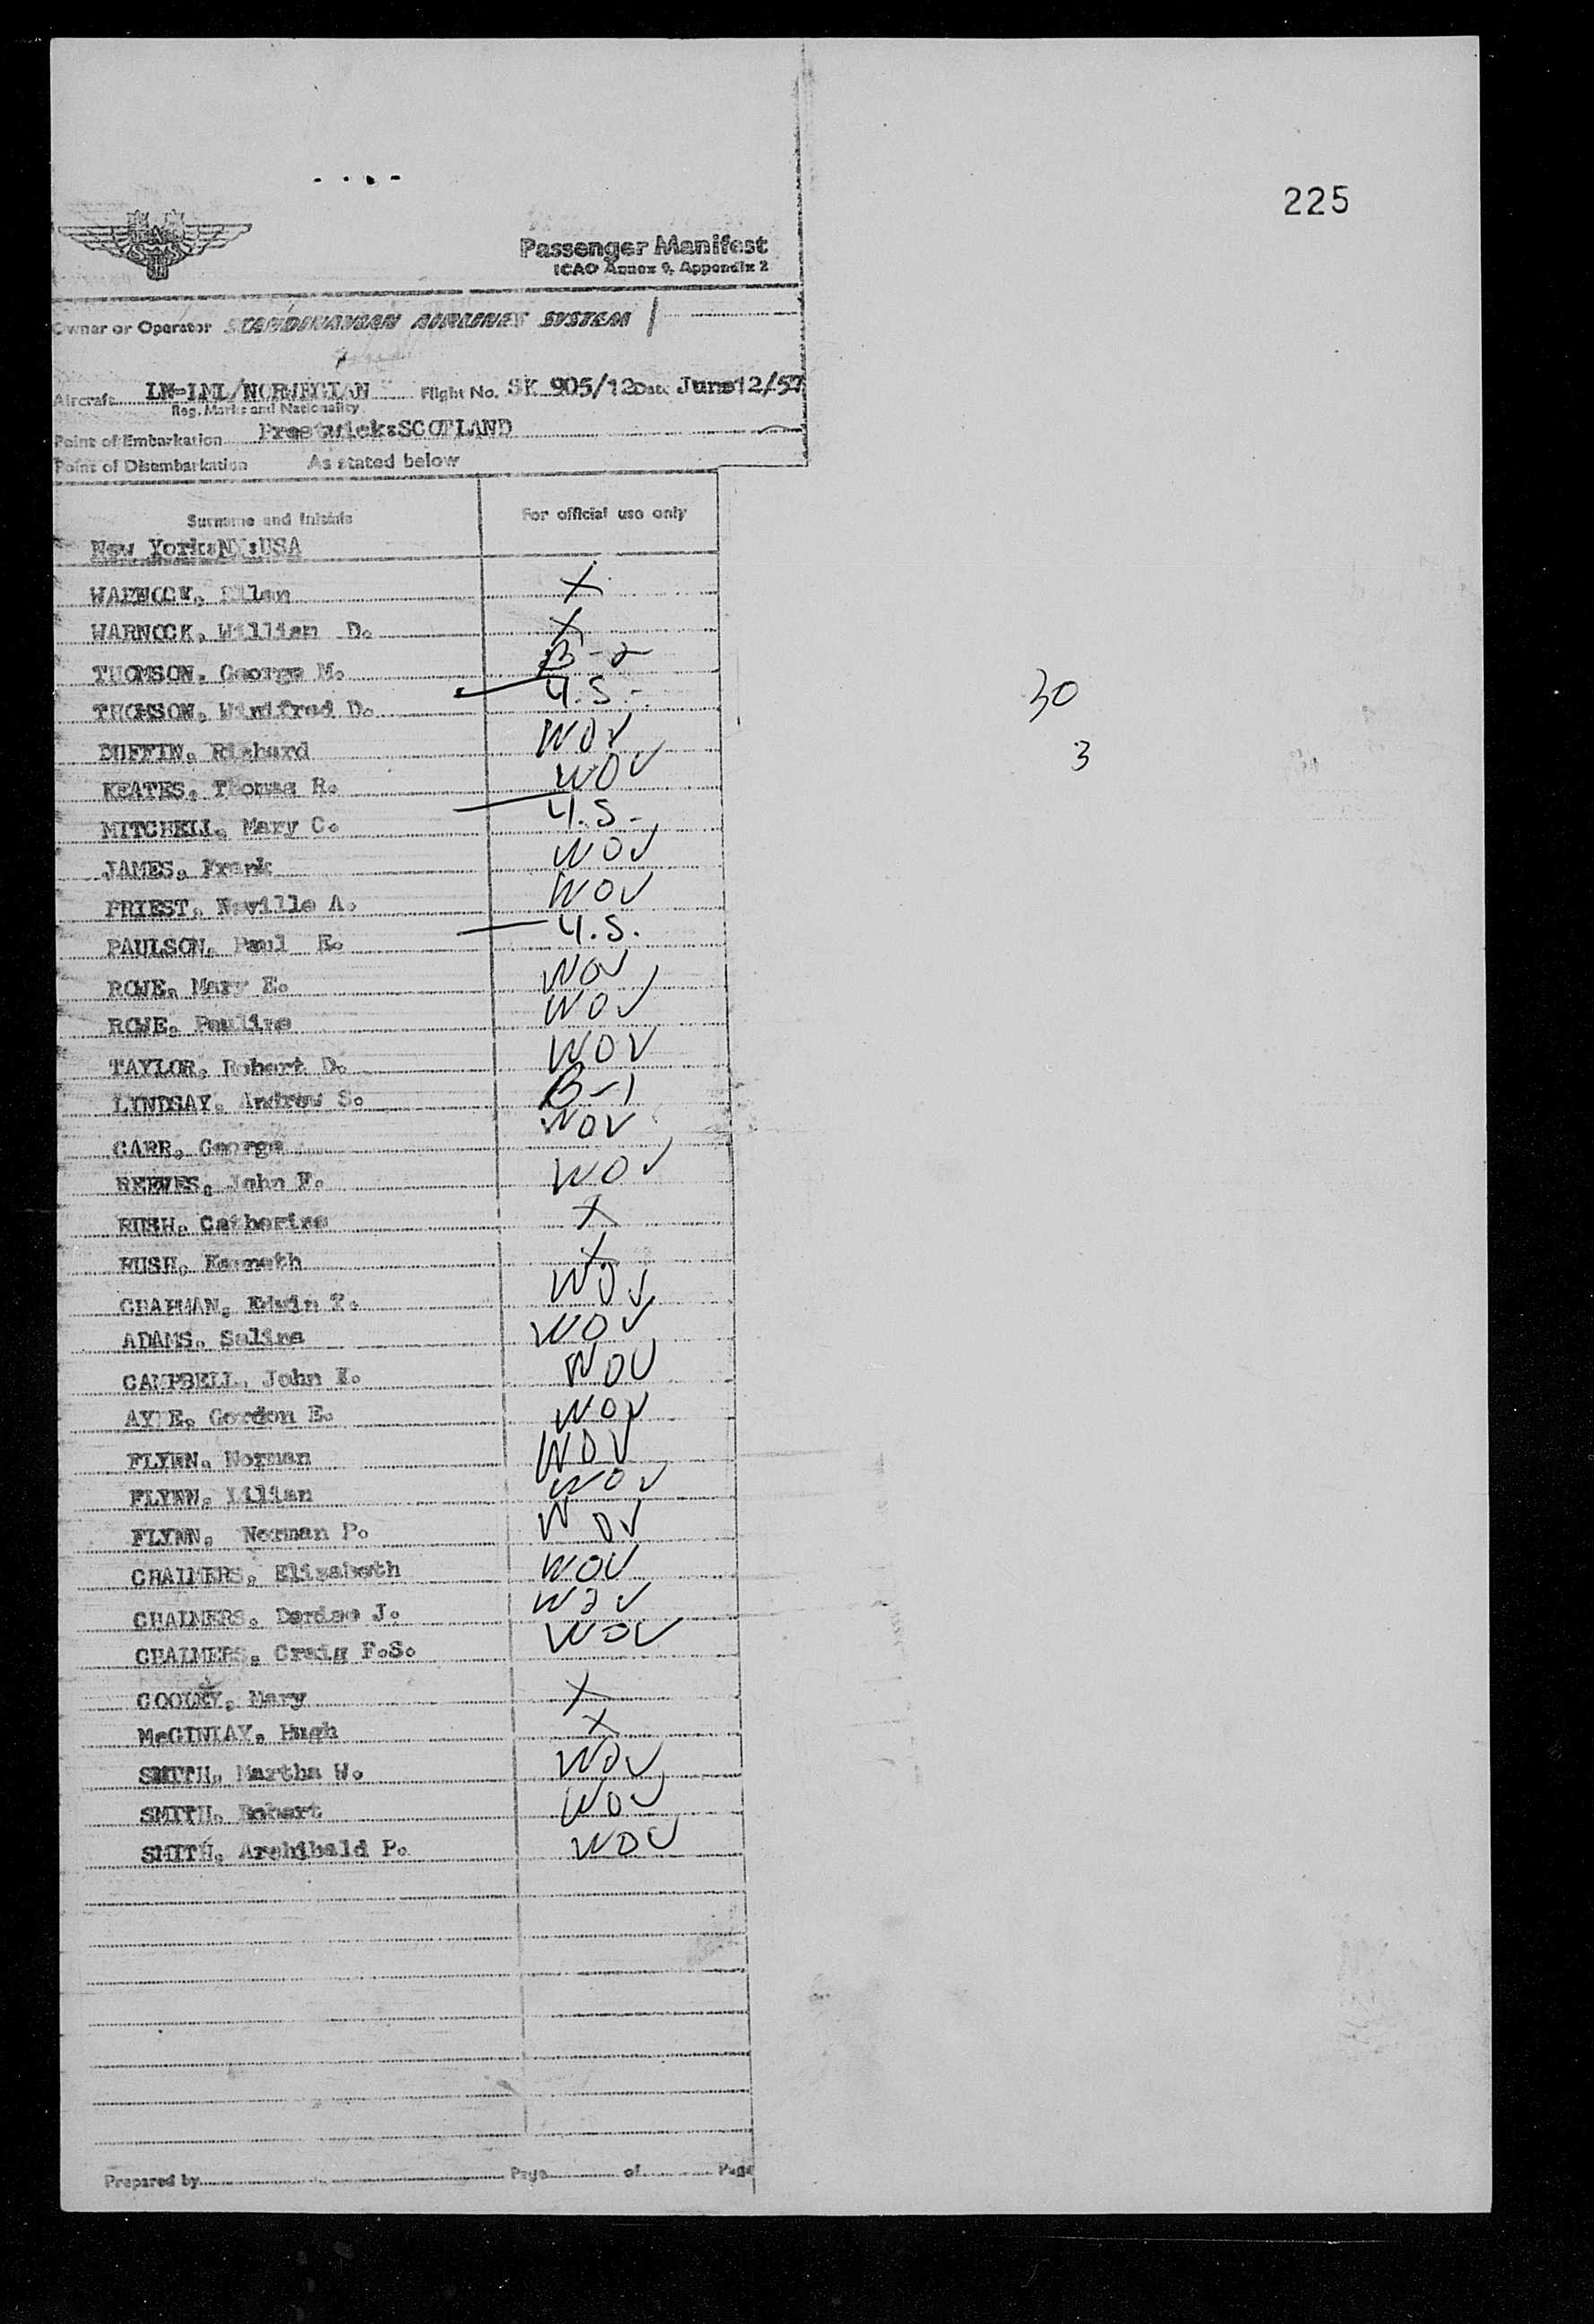 225
SAS
Passenger Manifest
ICAO Annex 9, Appendix 2
Owner or Operator SCANDINAVIAN AIRLINES SYSTEM
Aircraft LN-LML/NORWEGIAN Flight No. SK 905/12 Date June12/57
Reg. Marks and Nationality
Point of Embarkation Prestwick:SCOTLAND
Point of Disembarkation As stated below
Surname and Initials For official use only
New York:NY:USA
WARNOCK, Ellen X
WARNOCK, William D. X
THOMSON, George M. B-2
THOMSON, Winifred D. U.S.
DUFFIN, Richard WOV
KEATES, Thomas R. WOV
MITCHELL, Mary C. U.S.
JAMES, Frank WOV
PRIEST, Neville A. WOV
PAULSON, Paul E. U.S.
ROWE, Mary E. WOV
ROWE, Pauline WOV
TAYLOR, Robert D. WOV
LINDSAY, Andrew S. B-1
CARR, George WOV
REEVES, John F. WOV
RUSH, Catherine X
RUSH, Kenneth X
CHAPMAN, Edwin WOV
ADAMS, Selina WOV
CAMPBELL, John WOV
Gordon E. WOV
FLYNN, Norman WOV
FLYNN, Lilian WOV
FLYNN, Norman P. WOV
CHALMERS, Elizabeth WOV
CHALMERS, J. WOV
CHALMERS, Craig F.S. WOV
Mary X
McGINLAY, Hugh X
SMITH, Martha W. WOV
SMITH, Robert WOV
SMITH, Archibald P. WOV
30
3
Prepared by Page of Page